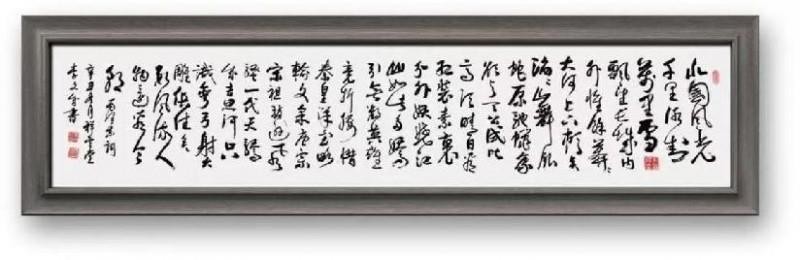 北國风光
千里冰封
萬里雪
飘望长城内
外惟馀莽莽
大河上下顿失
滔滔山舞银
蛇原驰蜡象
欲与天公试比
高须晴日看
红装素裹
分外妖娆江
山如此多娇
引无数英雄
竞折腰惜
秦皇汉武略
输文采唐宗
宋祖稍逊风
骚一代天骄
成吉思汗只
识弯弓射大
雕俱往矣
数风流人
物还看今
朝 毛泽东词
辛丑年
李文书